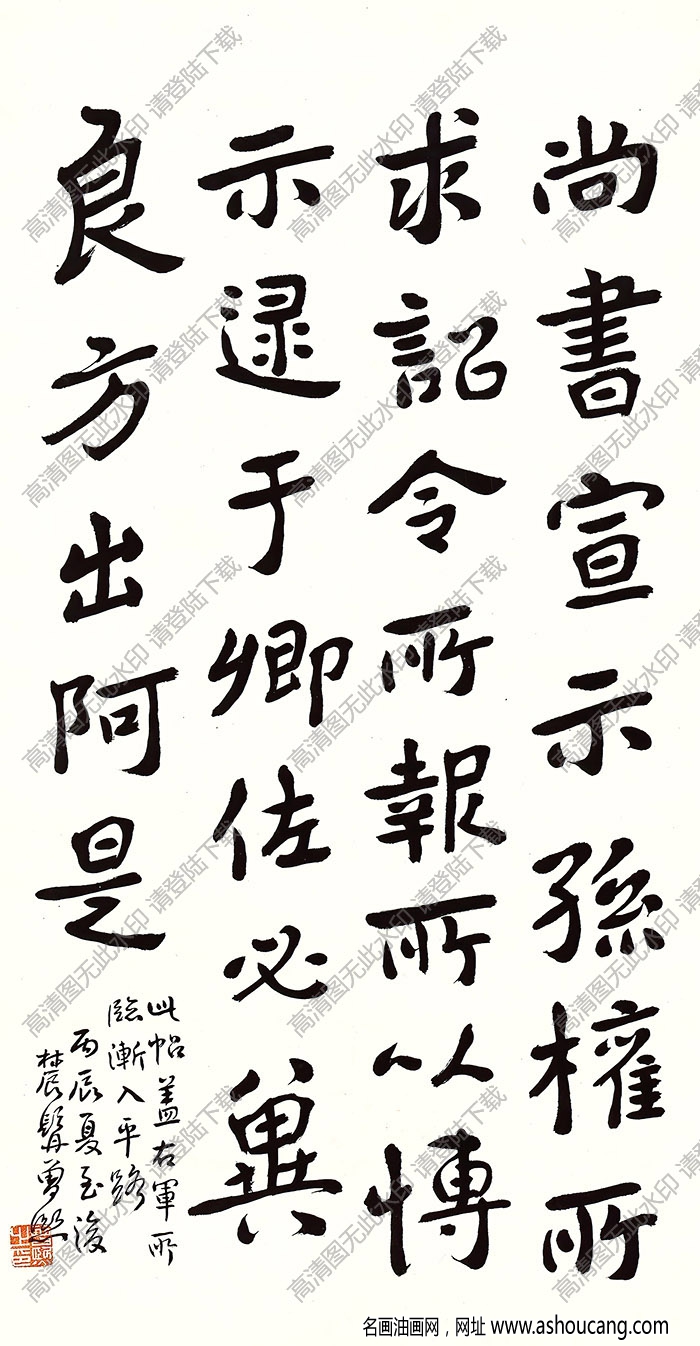 尚書宣示孫權所
求詔令所報所以愽
示逮于卿佐必冀
良方出阿是
此帖蓋右軍所
臨漸入平路
丙辰夏至後
農髯曾熙
高清图无此水印 请登陆下载
名画油画网，网址 www.ashoucang.com